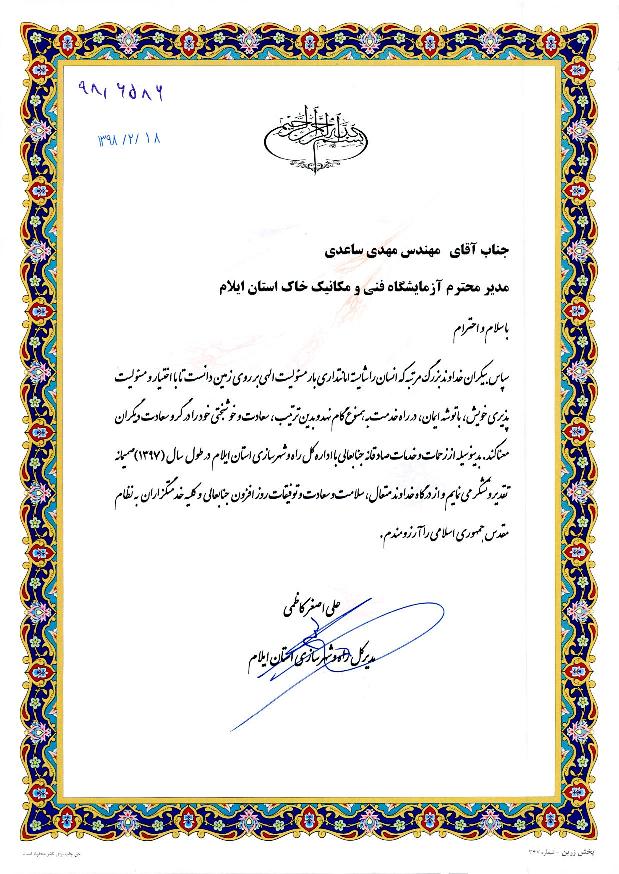 ۹۸/۶۵۸۶
۱۳۹۸/۲/۱۸
بسم الله الرحمن الرحیم
جناب آقای مهندس مهدی ساعدی
مدیر محترم آزمایشگاه فنی و مکانیک خاک استان ایلام
باسلام و احترام
سپاس بیکران خداوند بزرگ مرتبه که انسان را شایسته امانتداری بار مسئولیت الهی بر روی زمین دانست تا با اختیار و مسئولیت
پذیری خویش، با توشه ایمان، در راه خدمت به همنوع گام نهد و بدین ترتیب، سعادت و خوشبختی خود را در گرو سعادت دیگران
معنا کند. بدینوسیله از زحمات و خدمات صادقانه جنابعالی با اداره کل راه و شهرسازی استان ایلام در طول سال (۱۳۹۷) صمیمانه
تقدیر و تشکر می نمایم و از درگاه خداوند متعال، سلامت و سعادت و توفیقات روز افزون جنابعالی و کلیه خدمتگزاران به نظام
مقدس جمهوری اسلامی را آرزومندم.
علی اصغر کاظمی
مدیرکل راه و شهرسازی استان ایلام
پخش زرین - شماره ۳۴۷